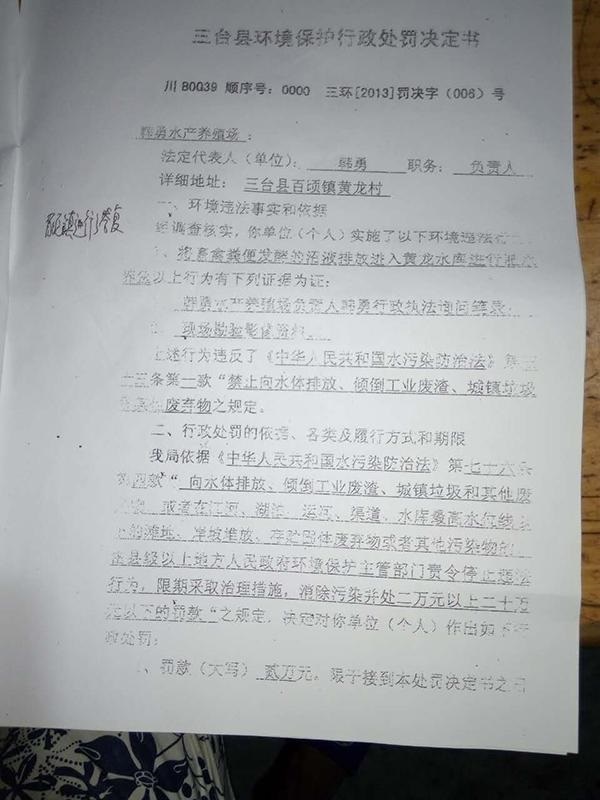 三台县环境保护行政处罚决定书
川 B0039 顺序号：0000 三环[2013]罚决字（006）号
韩勇水产养殖场：
法定代表人（单位）： 韩勇 职务： 负责人
详细地址： 三台县百顷镇黄龙村
一、环境违法事实和依据
经调查核实，你单位（个人）实施了以下环境违法行
将畜禽粪便发酵的沼液排放进入黄龙水库进行
以上行为有下列证据为证：
韩勇水产养殖场负责人韩勇行政执法询问笔录；
现场勘验影像资料。
上述行为违反了《中华人民共和国水污染防治法》第三
十三条第一款“禁止向水体排放、倾倒工业废渣、城镇垃圾
废弃物之规定。
二、行政处罚的依据、各类及履行方式和期限
我局依据《中华人民共和国水污染防治法》第七十六条
第四款“ 向水体排放、倾倒工业废渣、城镇垃圾和其他废
或者在江河、湖泊、运河、渠道、水库最高水位线以
下的滩地、岸坡堆放、存贮固体废弃物或者其他污染物的，
由县级以上地方人民政府环境保护主管部门责令停止违法
行为，限期采取治理措施，消除污染并处二万元以上二十万
元以下的罚款“之规定，决定对你单位（个人）作出如下行
政处罚：
、罚款（大写） 贰万元。限于接到本处罚决定书之日